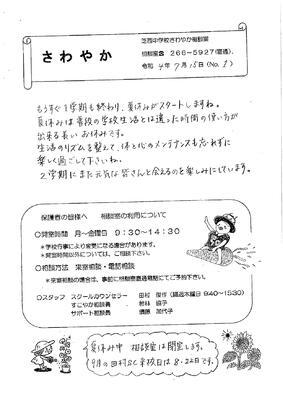 さわやか
芝西中学校さわやか相談室
相談室☎ 266-5927(直通)
令和 4年 7月 15日(No. 1)
もうすぐ1学期も終わり、夏休みがスタートしますね。
夏休みは普段の学校生活とは違った時間の使い方が
出来る長いお休みです。
生活のリズムを整えて、体と心のメンテナンスも忘れずに
楽しく過ごして下さいね。
2学期にまた元気な皆さんと会えるのを楽しみにしています。
保護者の皆様へ 相談室の利用について
○開室時間 月~金曜日 9:30~14:30
*学校行事により変更になる場合があります。
*開室時間以外については、ご相談下さい。
○相談方法 来室相談・電話相談
*来室相談の場合は、事前に相談室直通電話にてご予約下さい。
○スタッフ スクールカウンセラー 田村 (隔週木曜日 940~1530)
すこやか相談員 若林 協子
サポート相談員 須原 加代子
夏休み中 相談室は閉室します。
9月の田村SC来校日は 8.22日です。